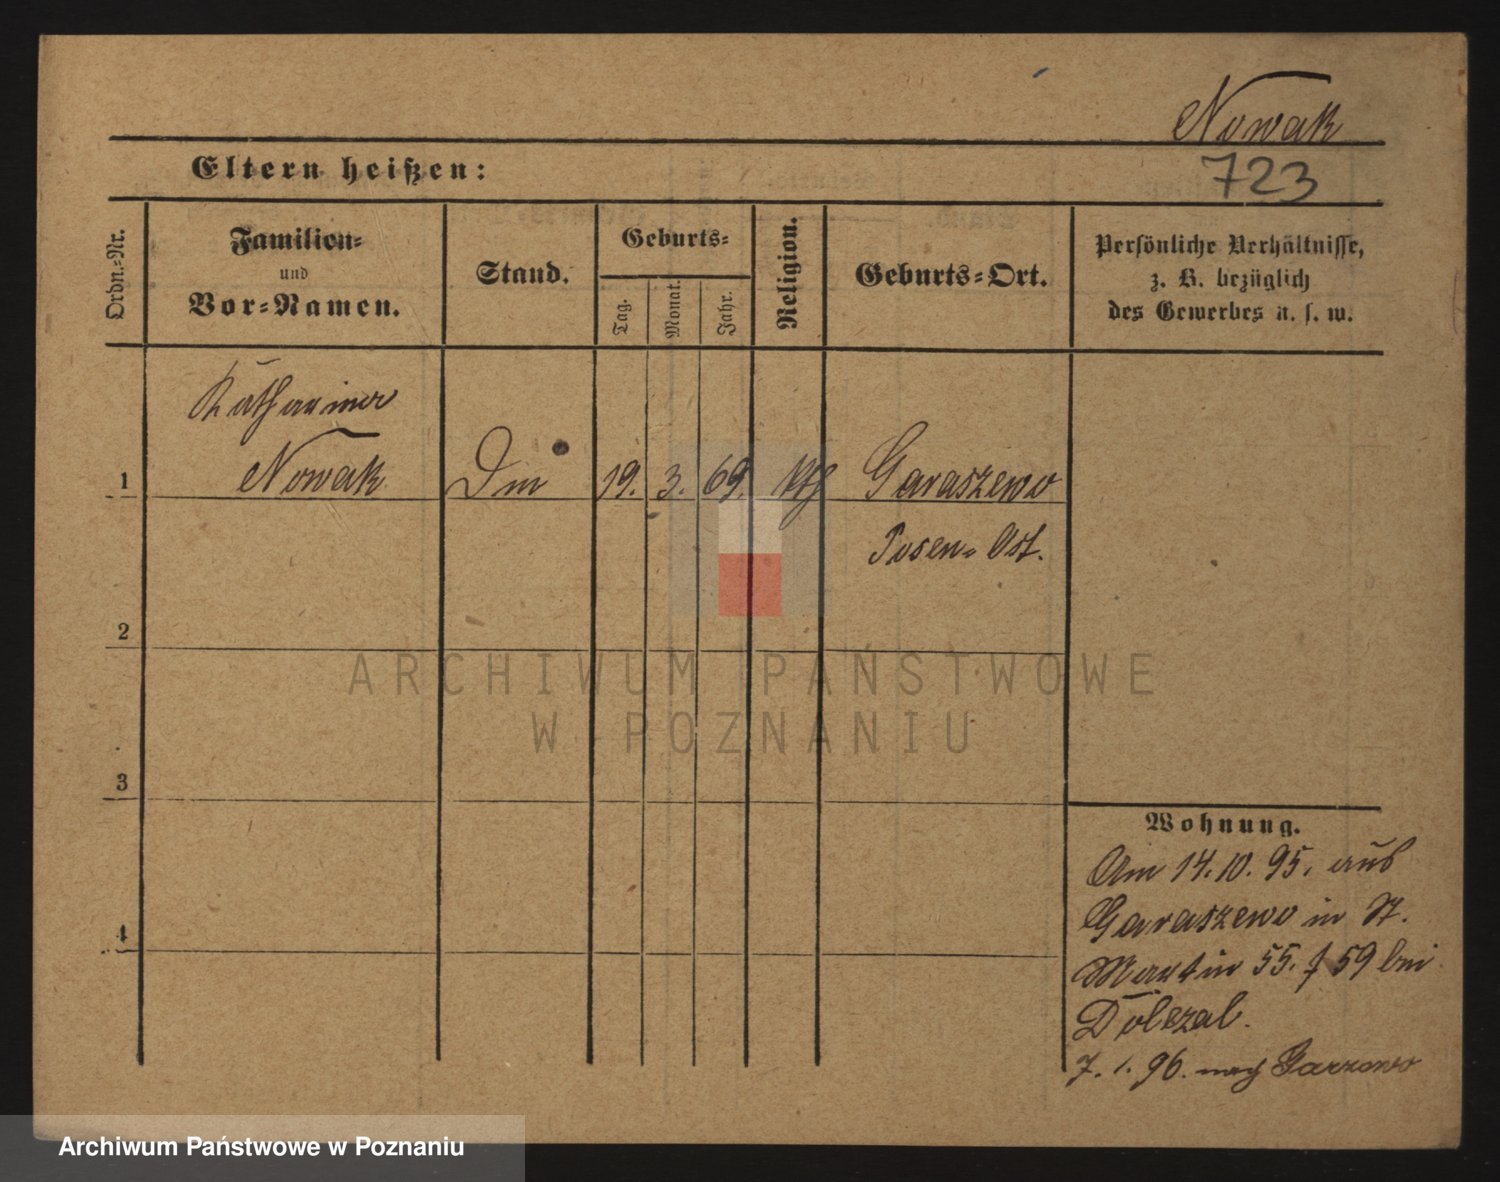 Nowak
723
Eltern heißen:
Ordn.-Nr.
Familien-
und
Vor-Namen.
Stand.
Geburts-
Tag.
Monat.
Jahr.
Religion.
Geburts-Ort.
Persönliche Verhältnisse,
z. B. bezüglich
des Gewerbes u. s. w.
Katharina
1 Nowak Din 19. 3. 69. kth Garaszewo
Posen-Ost.
2
3
4
Wohnung.
Am 14.10.95. aus
Garaszewo in St.
Martin 55. 59 bei
Dolezal.
7. 1. 96. nach
ARCHIWUM PAŃSTWOWE
W POZNANIU
Archiwum Państwowe w Poznaniu